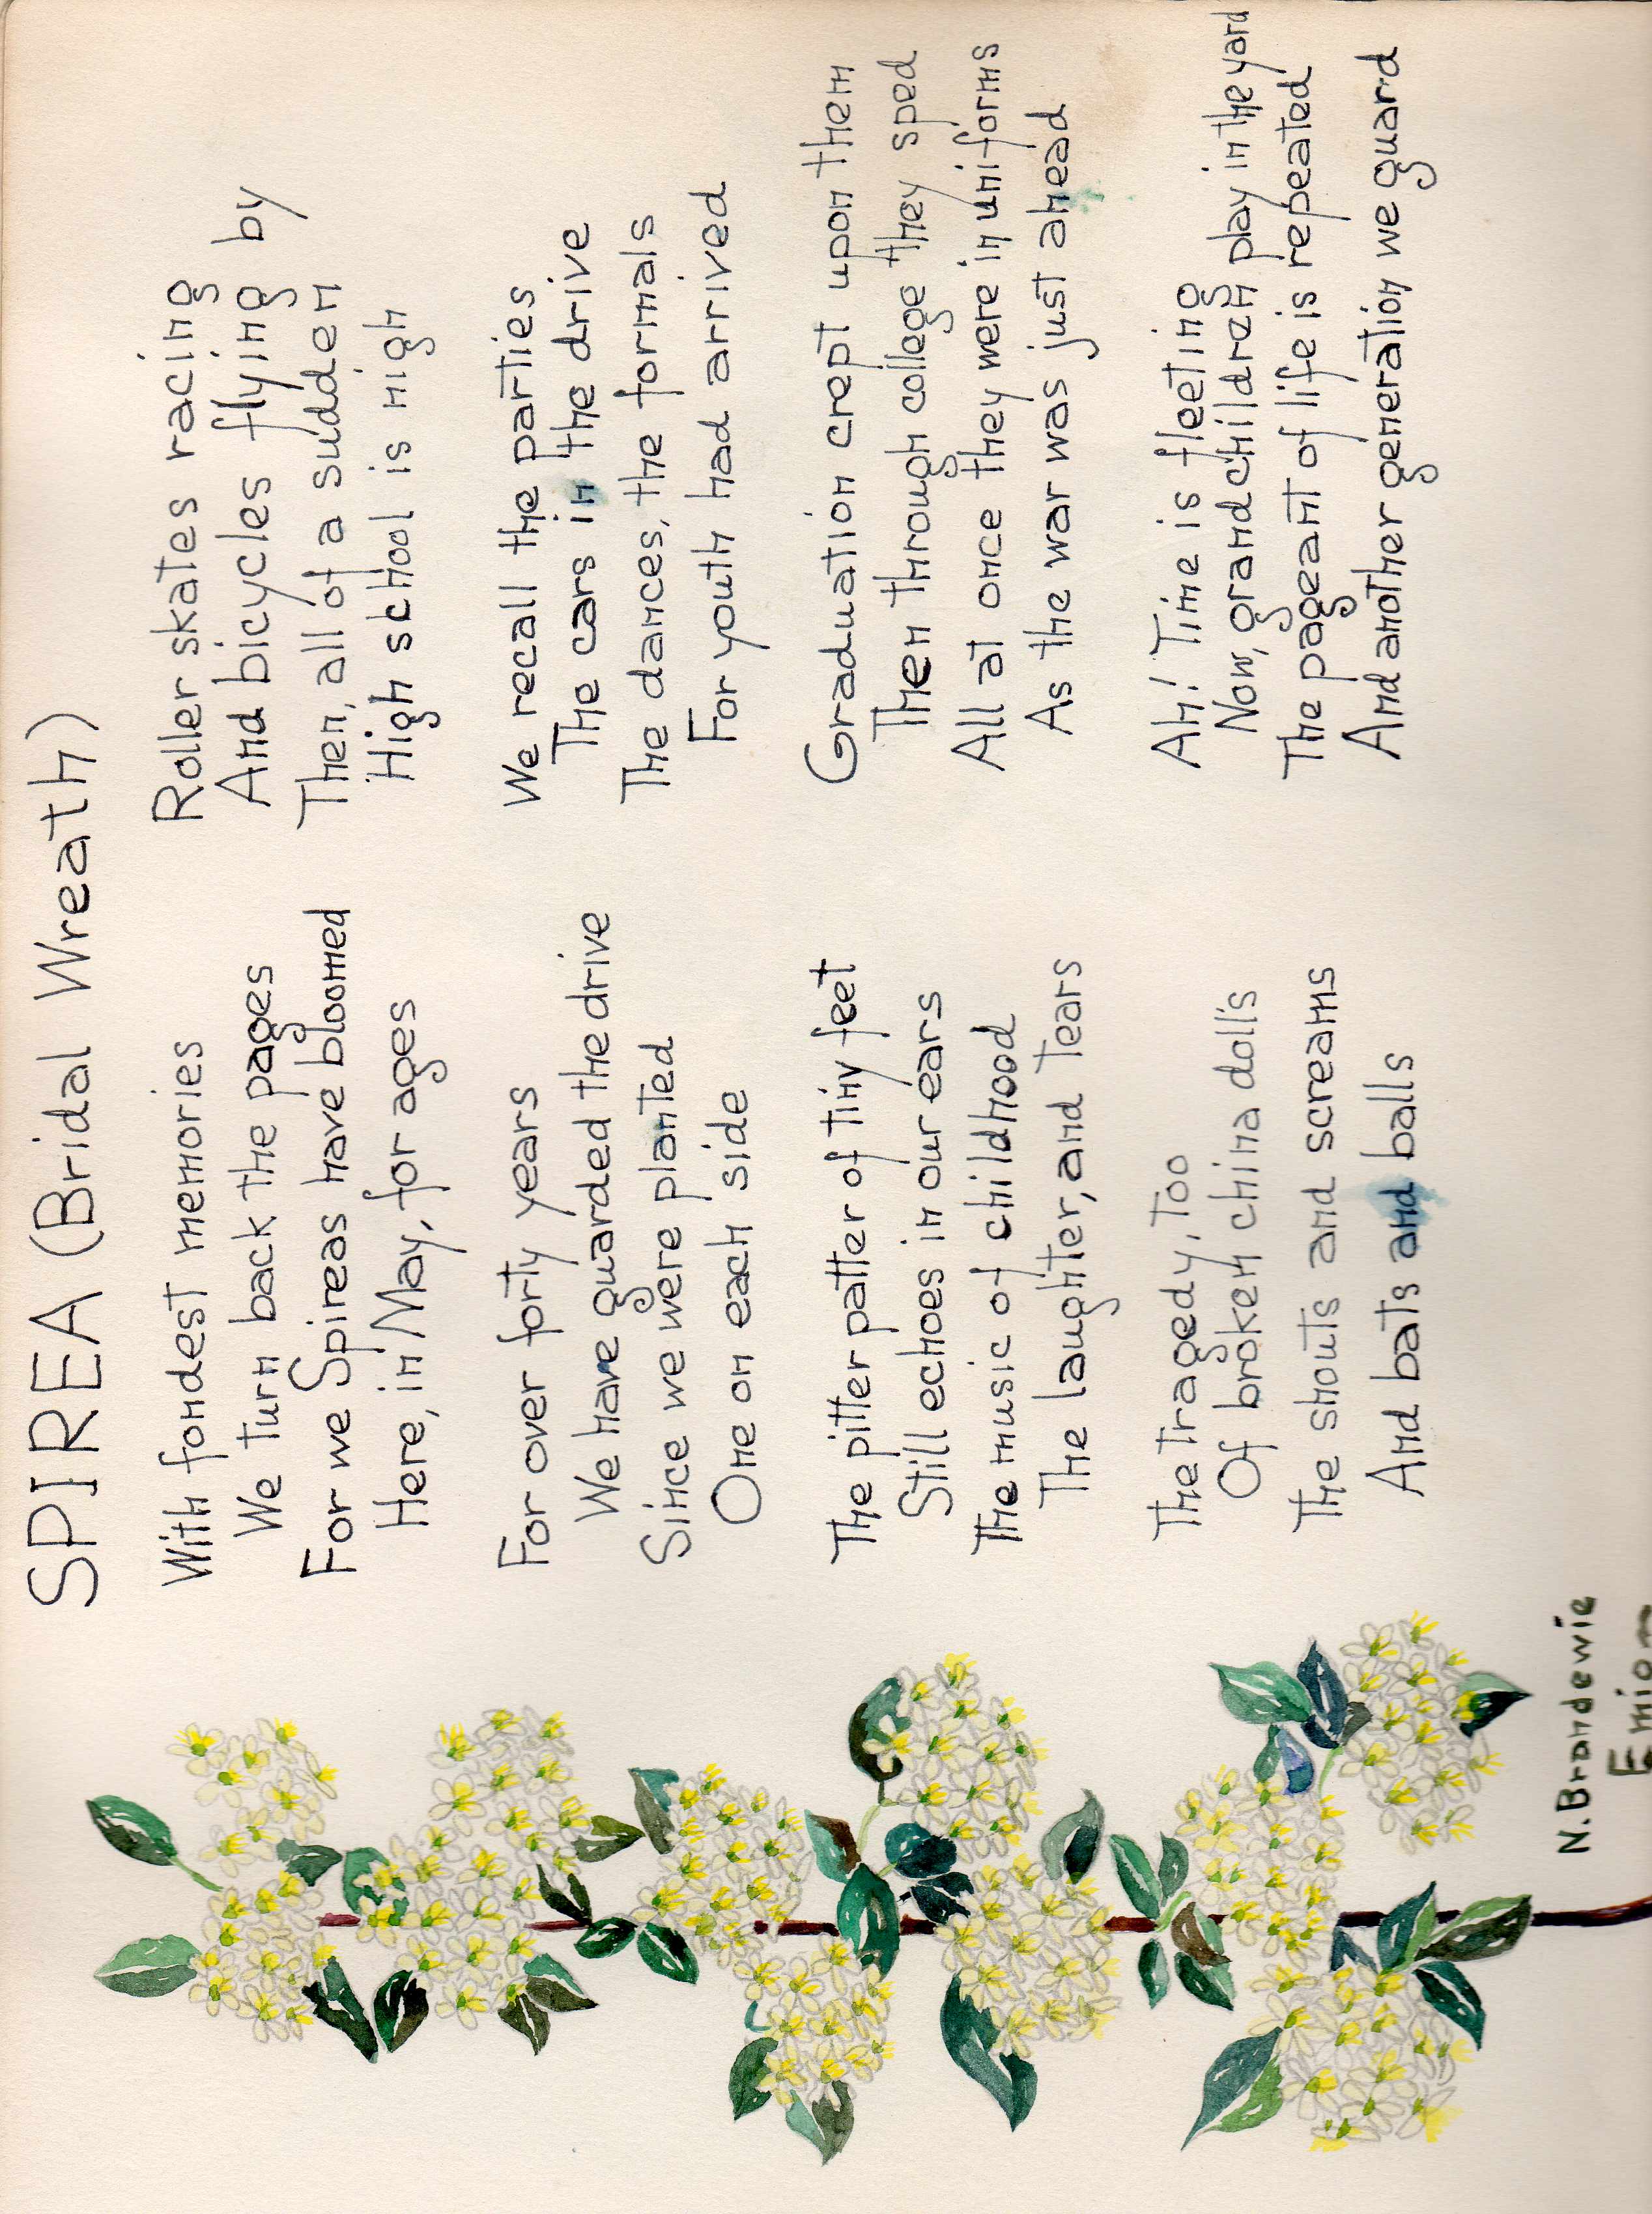 SPIREA (Bridal Wreath)
With fondest memories
We turn back the pages
For we Spireas have bloomed
Here, in May, for ages
For over forty years
We have guarded the drive
Since we were planted
One on each side
The pitter patter of tiny feet
Still echoes in our ears
The music of childhood
The laughter, and tears
The tragedy, too
Of broken china dolls
The shouts and screams
And bats and balls
Roller skates racing
And bicycles flying by
Then, all of a sudden
High school is nigh
We recall the parties
The cars in the drive
The dances, the formals
For youth had arrived
Graduation crept upon them
Then through college they sped
All at once they were in uniforms
As the war was just ahead
Ah! Time is fleeting
Now, grandchildren play in the yard
The pageant of life is repeated
And another generation we guard
N. Brandewie